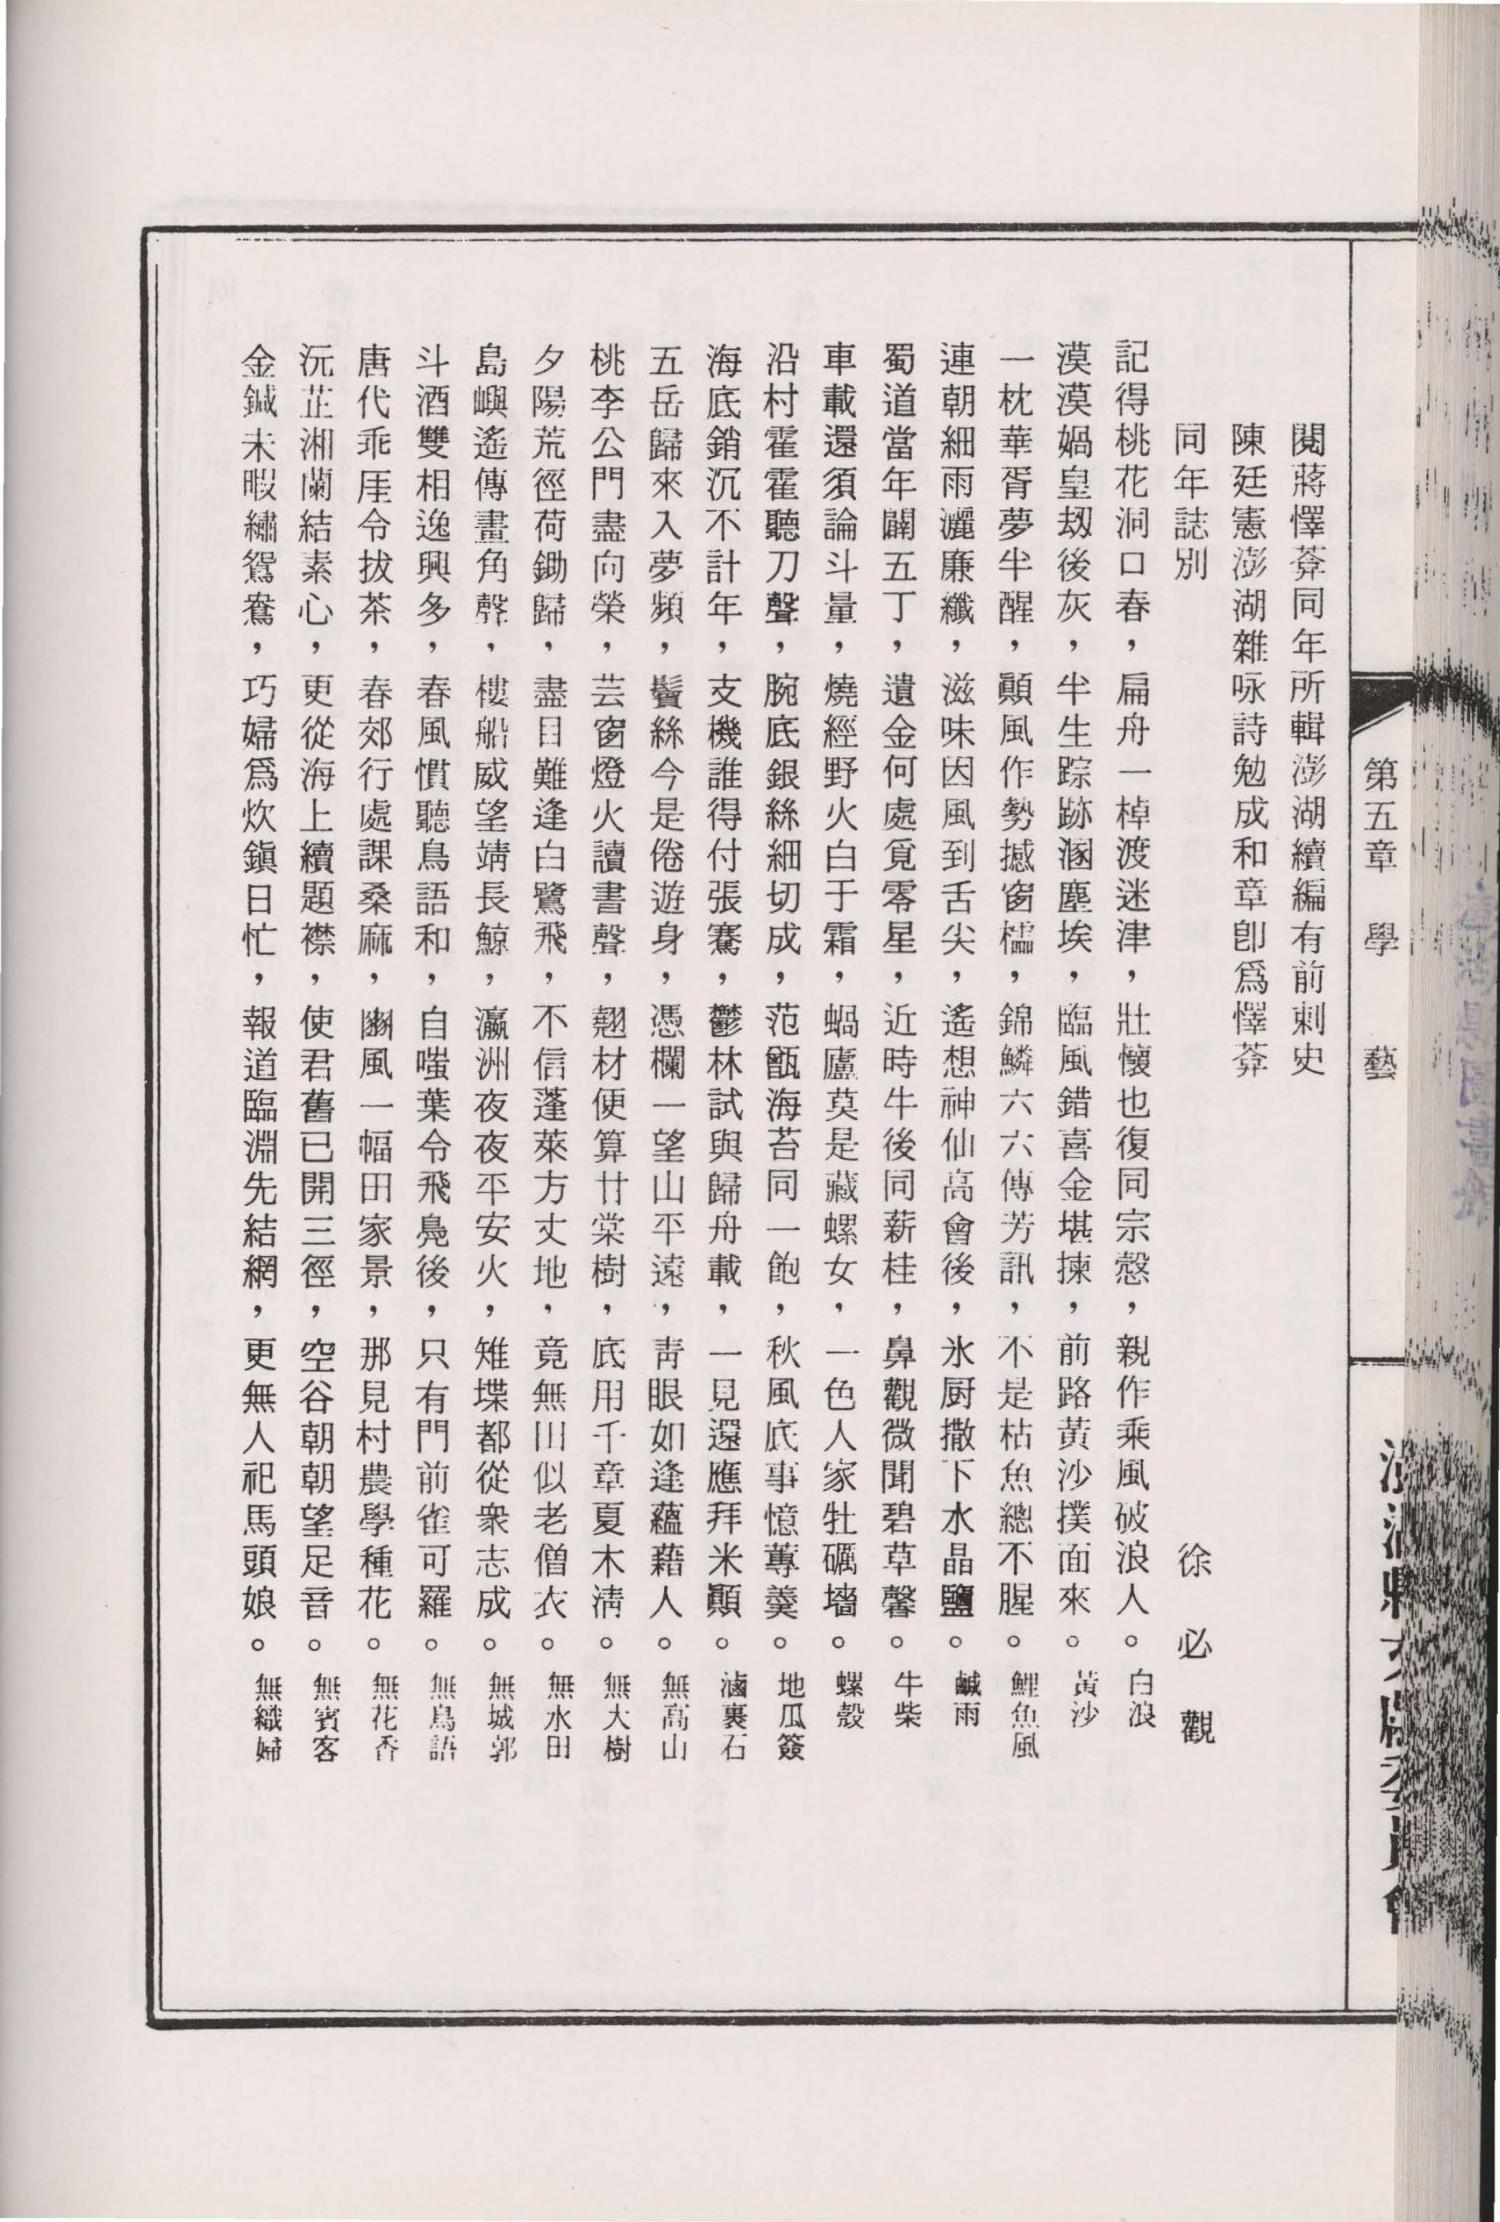 第五章　學　藝
閱蔣懌葊同年所輯澎湖續編有前刺史
陳廷憲澎湖雜咏詩勉成和章卽爲懌葊
同年誌別
徐必觀
記得桃花洞口春，扁舟一棹渡迷津，壯懷也復同宗慤，親作乘風破浪人。白浪
漠漠媧皇刼後灰，半生踪跡溷塵埃，臨風錯喜金堪揀，前路黃沙撲面來。黃沙
一枕華胥夢半醒，顚風作勢撼窗櫺，錦鱗六六傳芳訊，不是枯魚總不腥。鯉魚風
連朝細雨灑廉纖，滋味因風到舌尖，遙想神仙高會後，氷厨撒下水晶鹽。鹹雨
蜀道當年闢五丁，遺金何處覓零星，近時牛後同薪桂，鼻觀微聞碧草馨。牛柴
車載還須論斗量，燒經野火白于霜，蝸廬莫是藏螺女，一色人家牡礪墻。螺殼
沿村霍霍聽刀聲，腕底銀絲細切成，范甑海苔同一飽，秋風底事憶蓴羹。地瓜簽
海底銷沉不計年，支機誰得付張騫，鬱林試與歸舟載，一見還應拜米顚。滷裏石
五岳歸來入夢頻，鬢絲今是倦遊身，憑欄一望山平遠，靑眼如逢蘊藉人。無高山
桃李公門盡向榮，芸窗燈火讀書聲，翹材便算廿棠樹，底用千章夏木淸。無大樹
夕陽荒徑荷鋤歸，盡目難逢白鷺飛，不信蓬萊方丈地，竟無田似老僧衣。無水田
島嶼遙傳畫角聲，樓船威望靖長鯨，瀛洲夜夜平安火，雉堞都從衆志成。無城郭
斗酒雙相逸興多，春風慣聽鳥語和，自嗤葉令飛鳧後，只有門前雀可羅。無鳥語
唐代乖厓令拔茶，春郊行處課桑麻，豳風一幅田家景，那見村農學種花。無花香
沅芷湘蘭結素心，更從海上續題襟，使君舊已開三徑，空谷朝朝望足音。無賓客
金鍼未暇繡鴛鴦，巧婦爲炊鎭日忙，報道臨淵先結網，更無人祀馬頭娘。無織婦